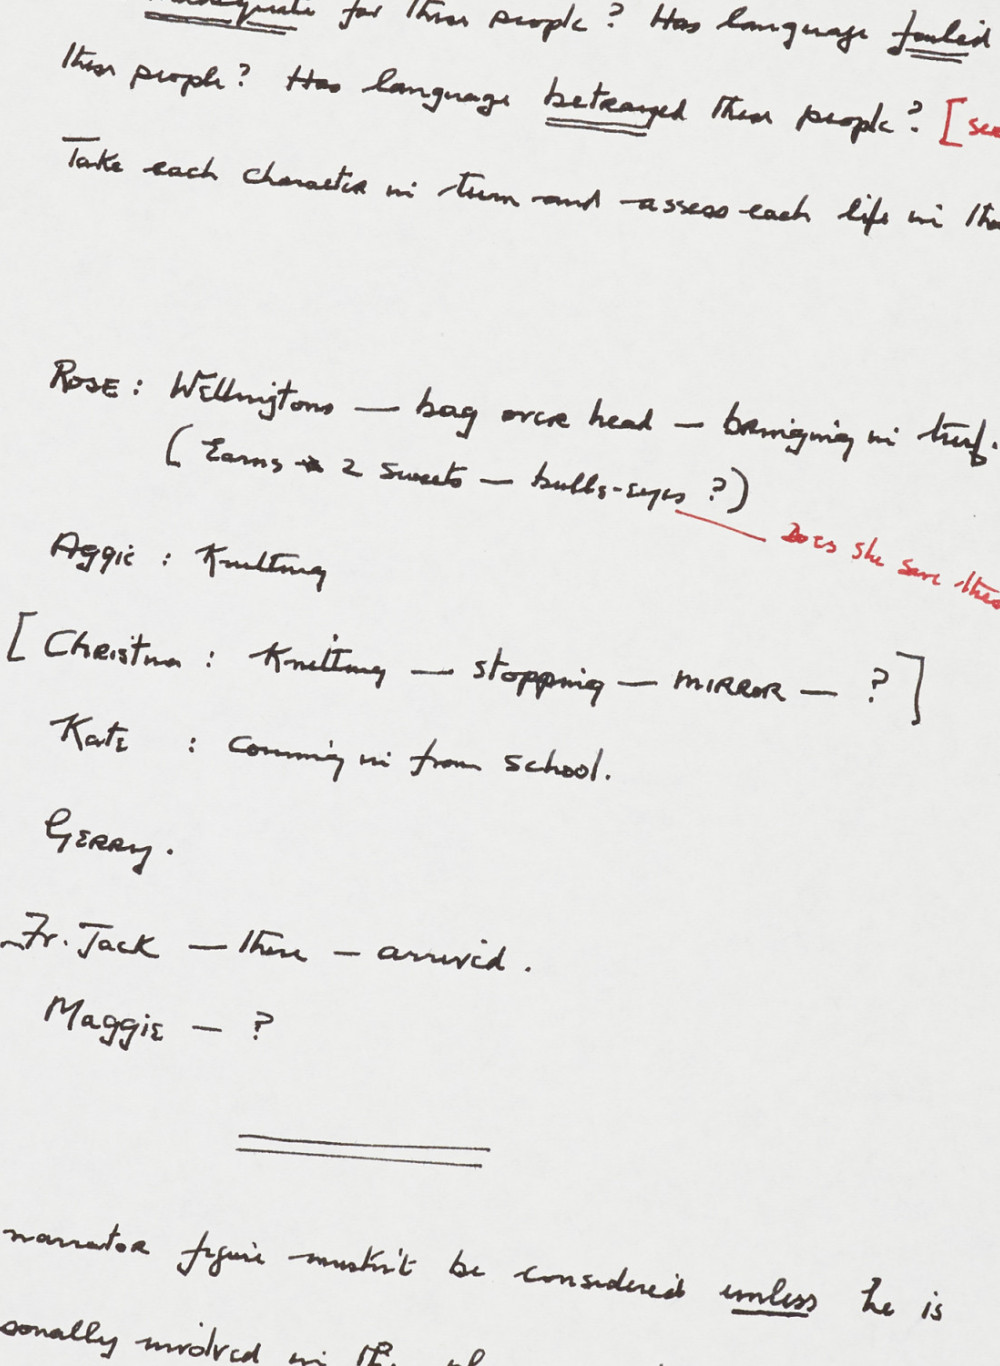 inadequate for these people? Has language failed
these people? Has language betrayed these people? [see
Take each character in turn and assess each life in
Rose: Wellingtons — bag over head — bringing in turf.
(Earns 2 sweets — bulls-eyes?)
Does she save them
Aggie: Knitting
[Christina: Knitting — stopping — MIRROR — ?]
Kate: Coming in from school.
Gerry.
Fr. Jack — there — arrived.
Maggie — ?
narrator figure mustn't be considered unless he is
sonally involved in the